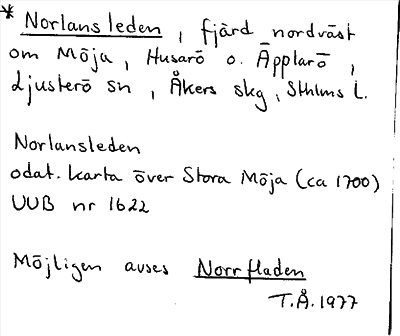 * Norlansleden, fjärd nordväst
om Möja, Husarö o. Äpplarö,
Ljusterö sn, Åkers skg, Sthlms l.
Norlansleden
odat. karta över Stora Möja (ca 1700)
UUB nr 1622
Möjligen avses Norrfladen
T.Å. 1977